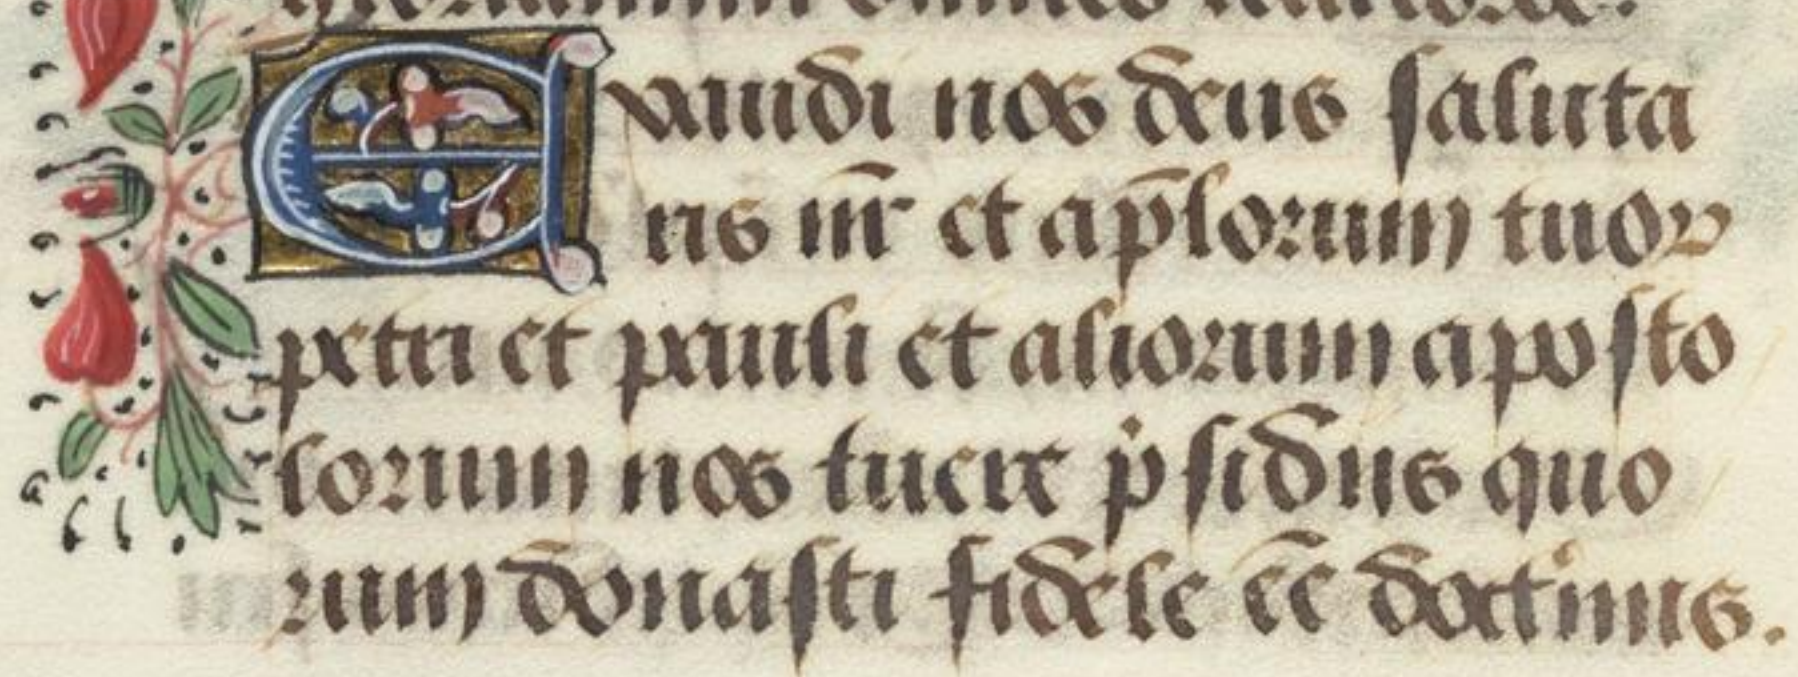 Exaudi nos deus saluta
ris nr̄ et ap̄lorum tuoꝝ
petri et pauli et aliorum aposto
lorum nos tuere p̍sidiis quo
rum donasti fidele eē doctrinis.